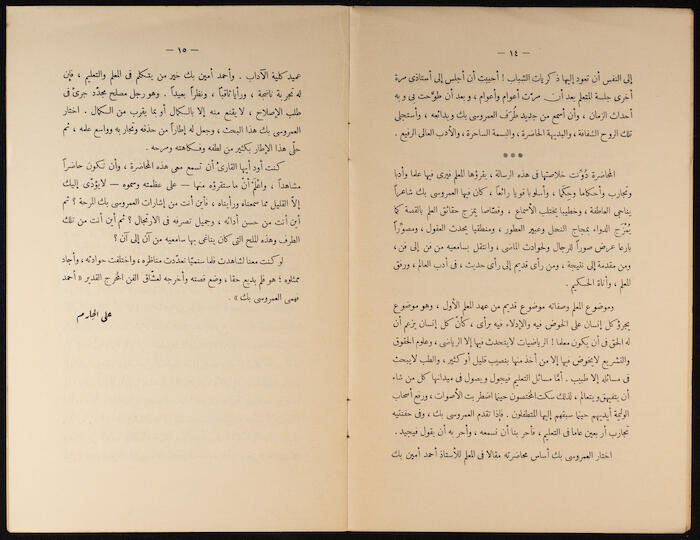 — ١٤ —
إلى النفس أن تعود إليها ذكريات الشباب ! أحببت أن أجلس إلى أستاذى مرة
أخرى جلسة المتعلم بعد أن مرّت أعوام وأعوام ، وبعد أن طوّحت بى وبه
أحداث الزمان ، وأن أسمع من جديد طُرَف العمروسى بك وبدائعه ، وأستجلى
تلك الروح الشفافة ، والبديهة الحاضرة ، والبسمة الساحرة ، والأدب العالى الرفيع .
***
المحاضرة دُوّنت خلاصتها فى هذه الرسالة ، يقرؤها المعلم فيرى فيها علما وأدبا
وتجارب وأحكاما وحِكما ، وأسلوبا قويا رائعاً ، كان فيها العمروسى بك شاعراً
يناجى العاطفة ، وخطيبا يختلب الأسماع ، وقصّاصا يمزج حقائق العلم بالقصة كما
يُمْزَج الدواء بمجاج النحل وعبير العطور ، ومنطقيا يحدث العقول ، ومصوّراً
بارعا عرض صوراً للرجال ولحوادث الماضى ، وانتقل بسامعيه من فن إلى فن ،
ومن مقدمة إلى نتيجة ، ومن رأى قديم إلى رأى حديث ، فى أدب العالم ، ورفق
المعلم ، وأناة الحكيم .
وموضوع المعلم وصفاته موضوع قديم من عهد المعلم الأول ، وهو موضوع
يجرؤ كل إنسان على الخوض فيه والإدلاء فيه برأى ، كأنّ كل إنسان يزعم أن
له الحق فى أن يكون معلما ! الرياضيات لا يتحدث فيها إلا الرياضى ، وعلوم الحقوق
والتشريع لا يخوض فيها إلا من أخذ منها بنصيب قليل أو كثير ، والطب لا يبحث
فى مسائله إلا طبيب . أمّا مسائل التعليم فيجول ويصول فى ميدانها كل من شاء
أن يتفيهق ويتعالم ، لذلك سكت المختصون حينما اضطربت الأصوات ، ورفع أصحاب
الولاية أيديهم حينما سبقهم إليها المتطفلون . فإذا تقدم العمروسى بك ، وفى حقيبته
تجارب أربعين عاما فى التعليم ، فأحر بنا أن نسمعه ، وأحر به أن يقول فيجيد .
اختار العمروسى بك أساس محاضرته مقالا فى المعلم للأستاذ أحمد أمين بك
— ١٥ —
عميد كلية الآداب . وأحمد أمين بك خير من يتكلم فى المعلم والتعليم ، فإن
له تجربة ناضجة ، ورأيا ثاقباً ، ونظراً بعيداً . وهو رجل مصلح مجدّد جرىء فى
طلب الإصلاح ، لا يقنع منه إلا بالكمال أو بما يقرب من الكمال . اختار
العمروسى بك هذا البحث ، وجعل له إطاراً من حذقه وتجاربه وواسع علمه ، ثم
حلّى هذا الإطار بكثير من لطفه وفكاهته ومرحه .
كنت أود أيها القارئ أن تسمع معى هذه المحاضرة ، وأن تكون حاضراً
مشاهداً ، واعْلَمْ أنّ ما ستقرؤه منها — على عظمته وسموه — لا يؤدّى إليك
إلاّ القليل مما سمعناه ورأيناه ، فأين أنت من إشارات العمروسى بك المرحة ؟ ثم
أين أنت من حسن أدائه ، وجميل تصرفه فى الارتجال ؟ ثم أين أنت من تلك
الطرف وهذه الملح التى كان يناغى بها سامعيه من آن إلى آن ؟
لو كنت معنا لشاهدت فلما سنميّا تعدّدت مناظره ، واختلفت حوادثه ، وأجاد
ممثلوه ! هو فلم بديع حقا ، وضع قصته وأخرجه لعشّاق الفن المخرج القدير « أحمد
فهمى العمروسى بك » .
على الجارم